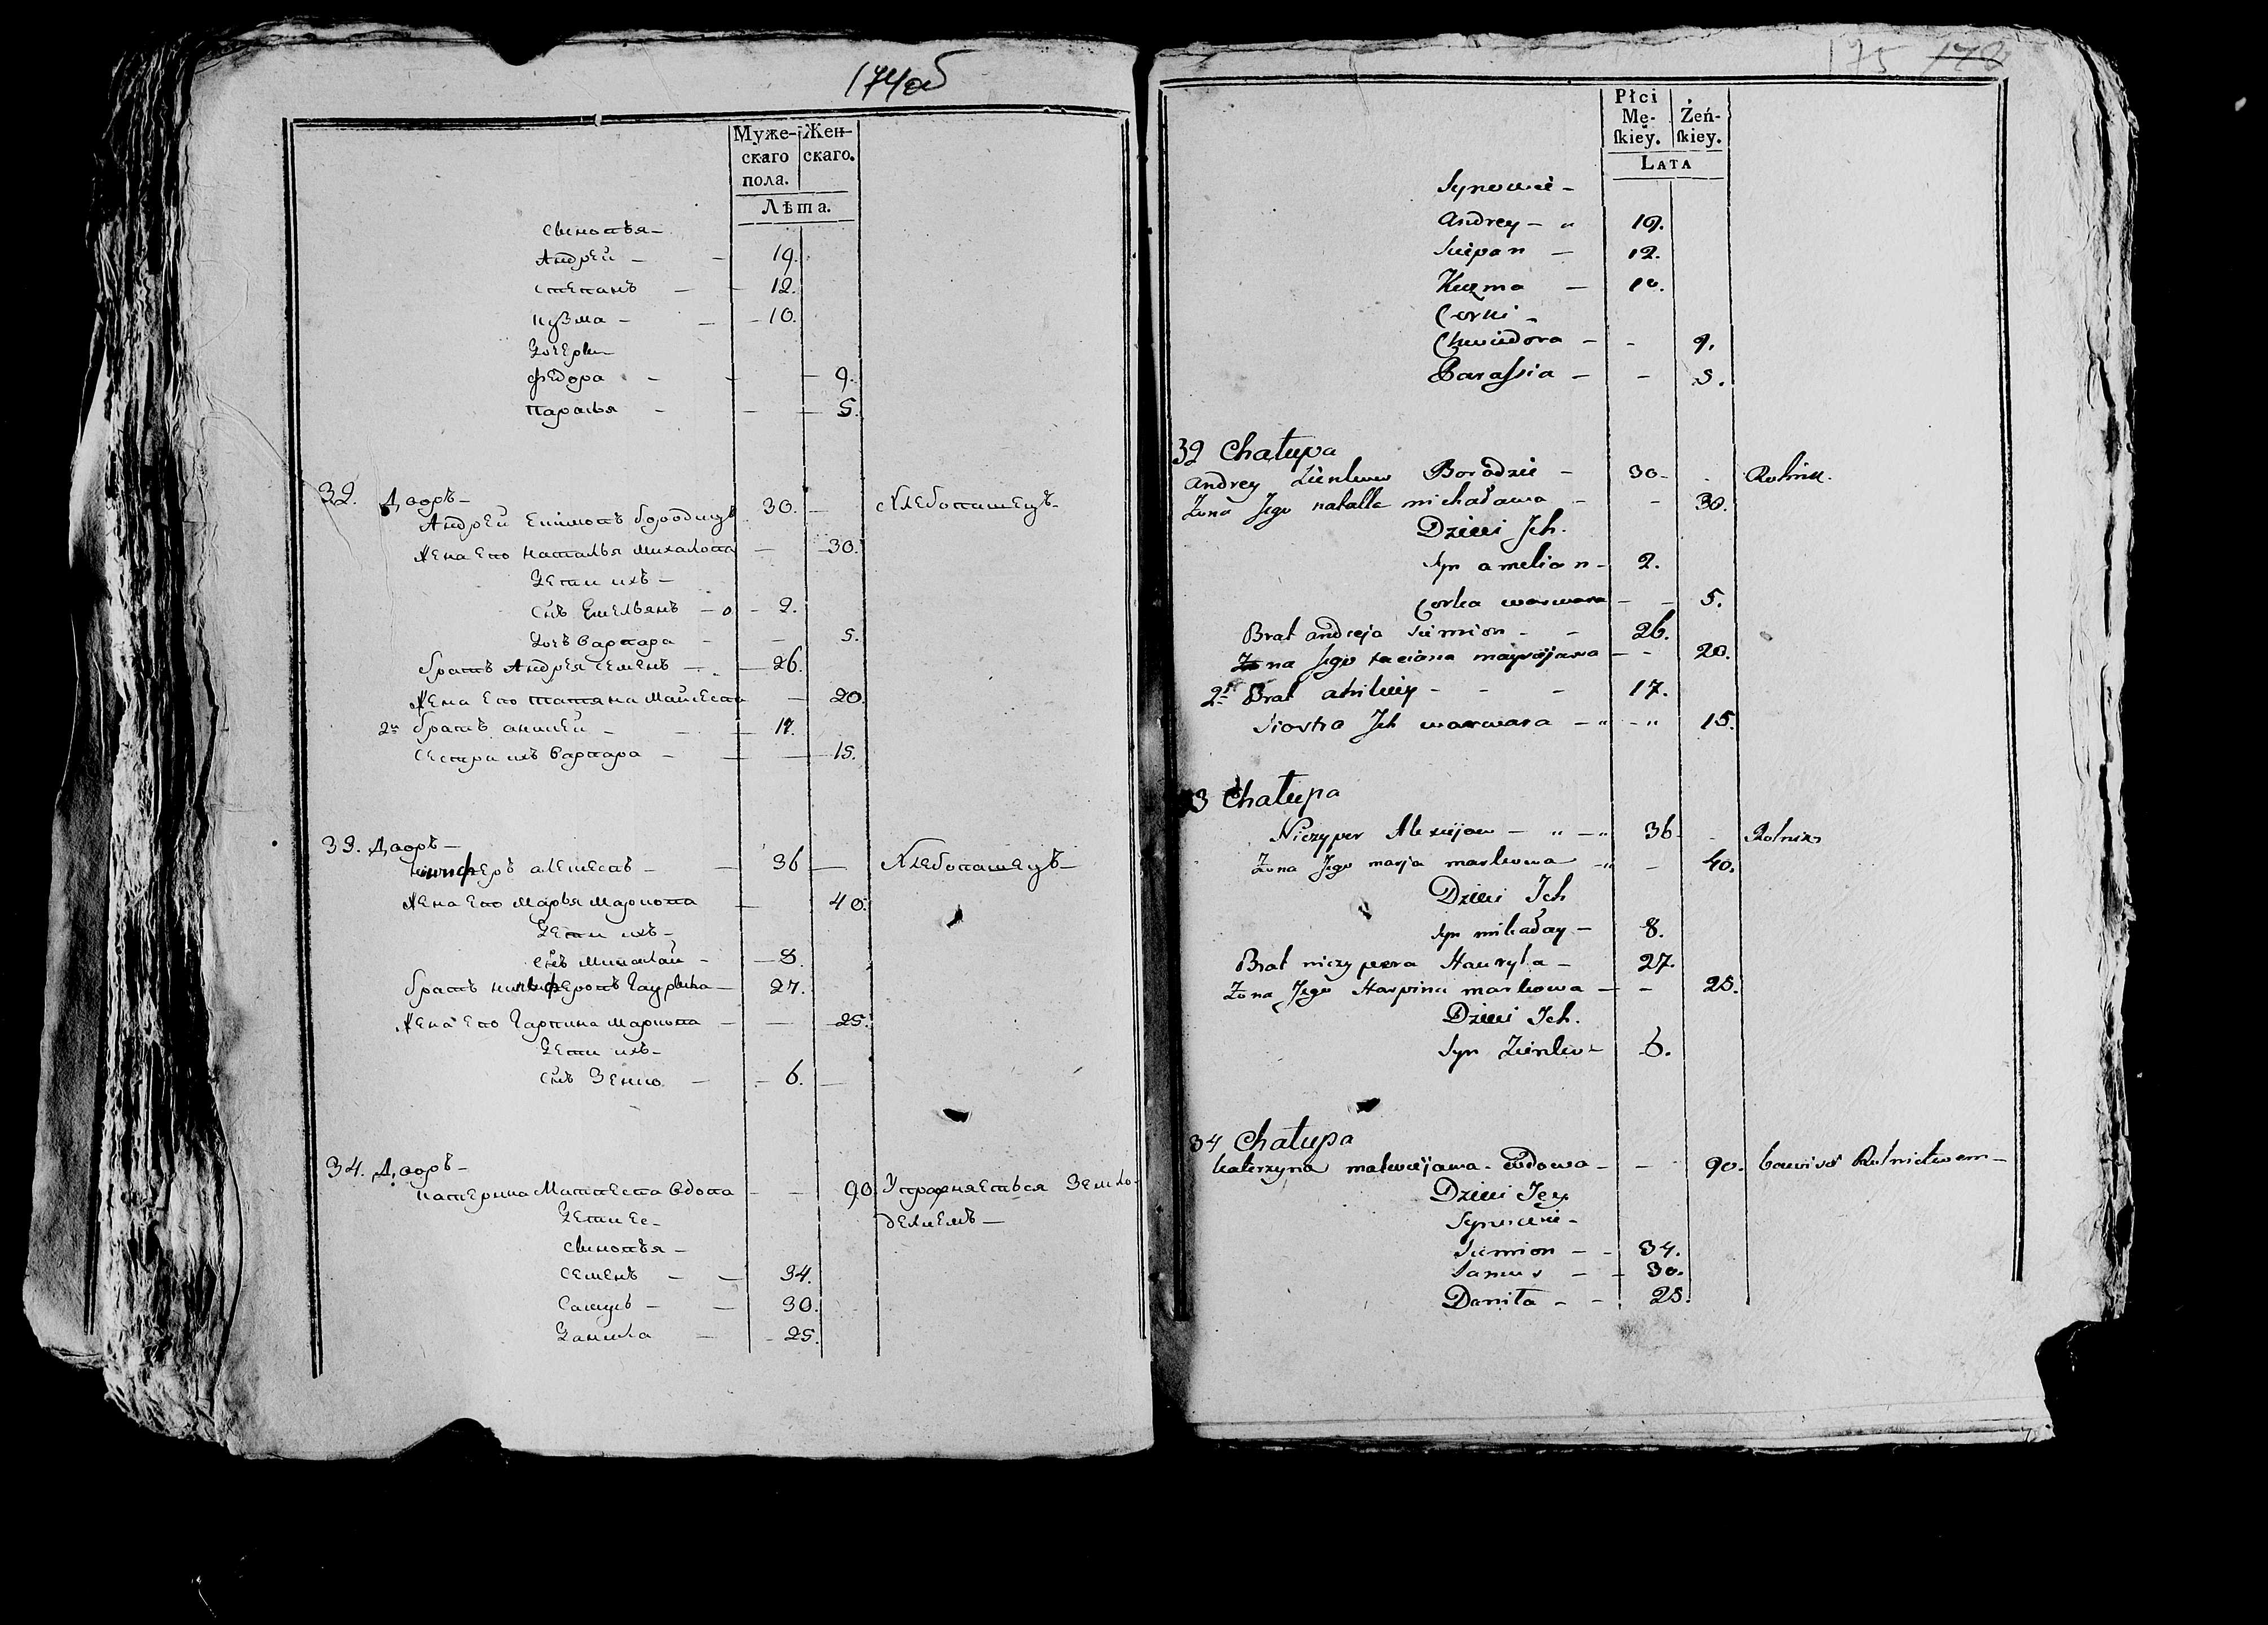 174об
Муже- Жен-
скаго скаго.
пола.
Лѣта.
сыновья –
Андрей – – 19.
степанъ – – 12.
кузма – – 10.
дочери –
федора – – – 9.
парасья – – – 5.
32. Дворъ –
Андрей Зинковъ бородичъ 30. – хлебопашецъ –
жена Его наталья михалова – 30.
дети ихъ –
сынъ Емельянъ – 2.
дочь варвара – – 5.
братъ Андрея семенъ – 26.
жена Его татяна майсеева – 20.
2й братъ аникей – – 17.
сестра ихъ варвара – – 15.
33. Дворъ –
никиферъ алексеевъ – – 36 – хлебопашецъ –
жена Его марья маркова – 40.
дети ихъ –
сынъ миколай – – 8.
братъ никиферовъ гаврыла – 27.
жена Его гарпина маркова – – 25.
дети ихъ –
сынъ Зенко – – 6. –
34. Дворъ –
катерына Матвеева вдова – – 90. Упражняеться Земле-
дети ее – делиемъ –
сыновья –
семенъ – – 34.
самусъ – – 30.
данила – – 25.
175 178
Płci
Mę- Żeń-
ſkiey. ſkiey.
LATA
Synowie –
Andrey – „ 19.
Sciepan – 12.
Kuzma – 10.
Corki –
Chwiedora – – 9.
Parassia – – 5.
32 Chałupa
Andrey Zienkow Borodzic – 30 – . Rolnik.
Zona Jego natalla michałowa – – 30.
Dzieci Jch.
Syn amelian – 2.
Corka warwara – – 5.
Brat andreja siemion – – 26.
Zona Jego taciana maysejawa – – 20.
2i Brat anikiey – – – 17.
Siostra Jch warwara – „ – „ 15.
33 Chałupa
Niczyper Alexiejow – „ – „ 36 – . Rolnik
Zona Jego marja markowa – „ – 40.
Dzieci Ich
Syn mikałay – 8.
Brat niczypera Hauryła – 27.
Zona Jego Harpina markowa – – 25.
Dzieci Ich.
Syn Zienko – 6.
34 Chałupa
Katerzyna matwiejawa wdowa – – 90. bawi się Rolnictwem –
Dzieci Jey
Synowie –
Siemion – – 34.
Samus – – 30.
Daniła – – 25.